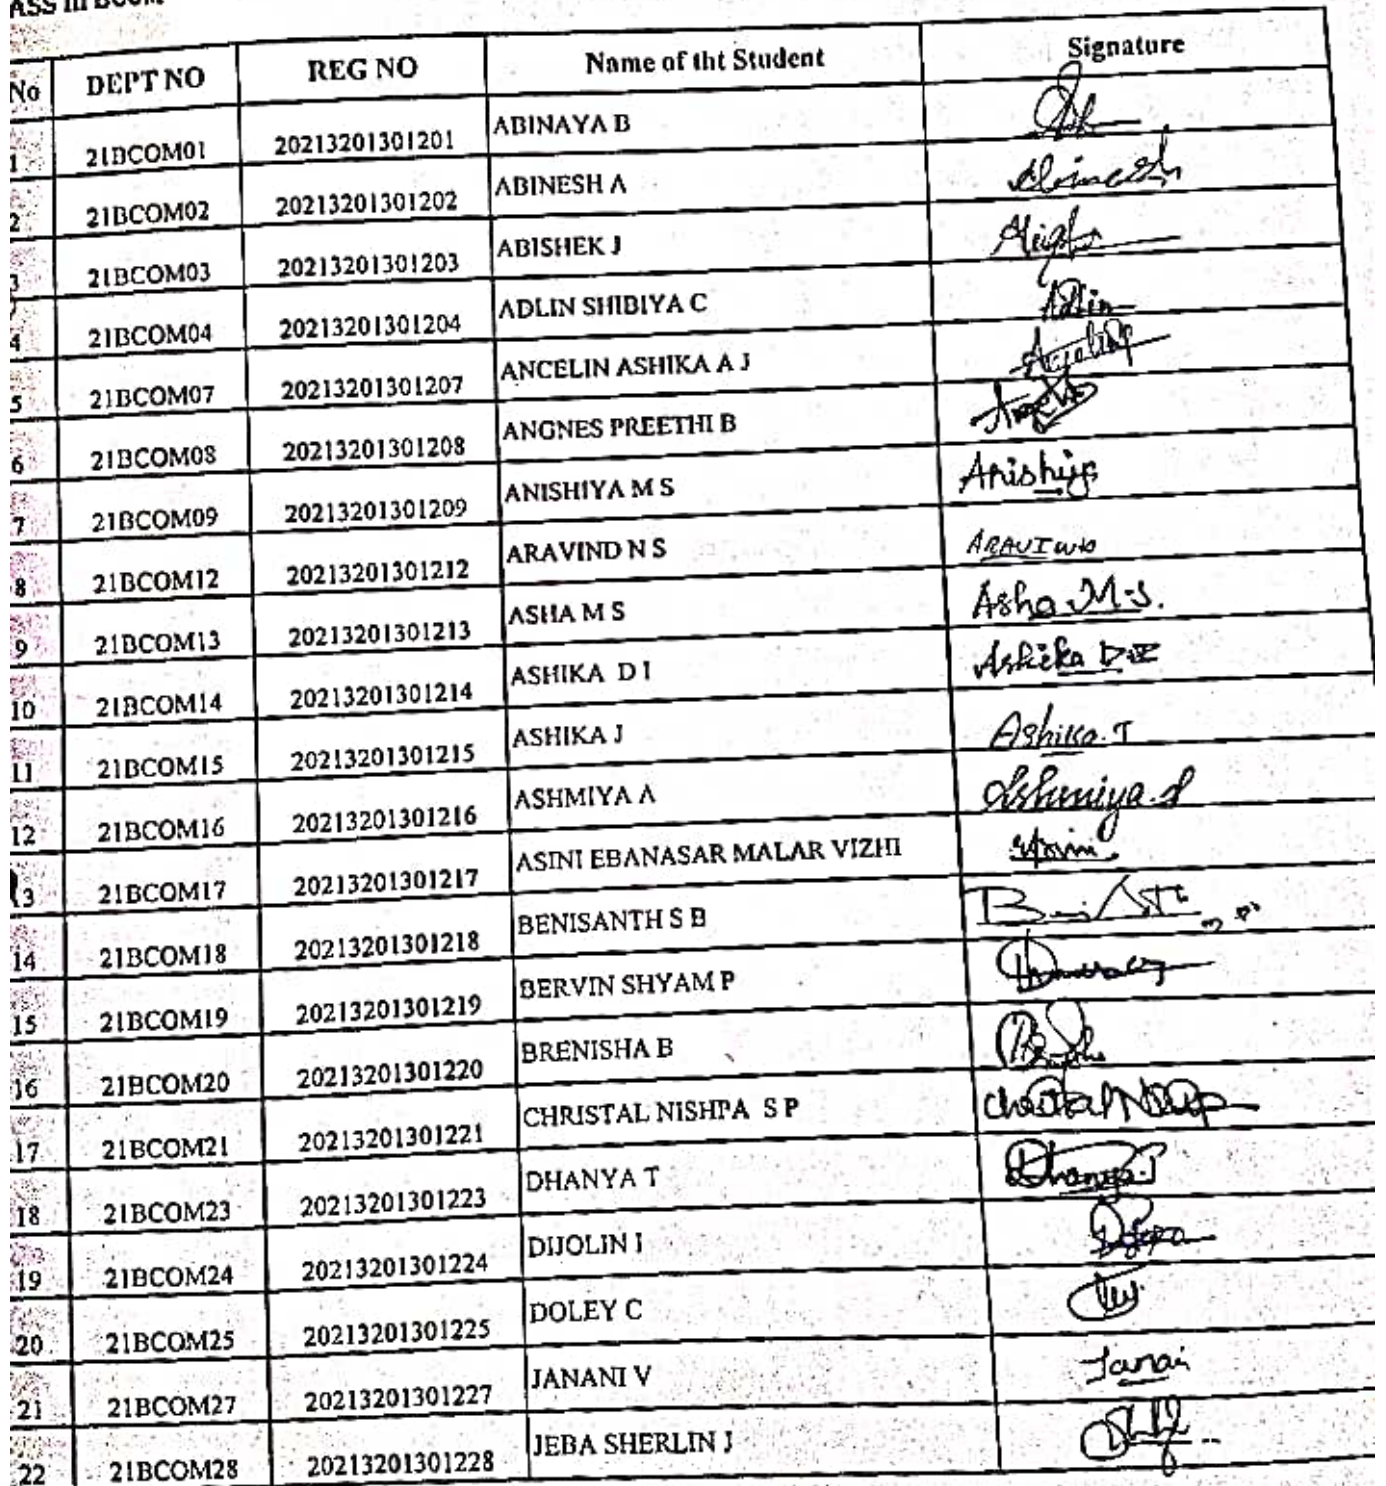 ASS III BCOM
No DEPT NO REG NO Name of tht Student Signature
1 21BCOM01 20213201301201 ABINAYA B
2 21BCOM02 20213201301202 ABINESH A Abinesh
3 21BCOM03 20213201301203 ABISHEK J
4 21BCOM04 20213201301204 ADLIN SHIBIYA C Adlin
5 21BCOM07 20213201301207 ANCELIN ASHIKA A J
6 21BCOM08 20213201301208 ANGNES PREETHI B
7 21BCOM09 20213201301209 ANISHIYA M S Anishiya
8 21BCOM12 20213201301212 ARAVIND N S ARAVIND
9 21BCOM13 20213201301213 ASHA M S Asha M.S.
10 21BCOM14 20213201301214 ASHIKA D I Ashika D I
11 21BCOM15 20213201301215 ASHIKA J Ashika.J
12 21BCOM16 20213201301216 ASHMIYA A Ashmiya.A
13 21BCOM17 20213201301217 ASINI EBANASAR MALAR VIZHI
14 21BCOM18 20213201301218 BENISANTH S B
15 21BCOM19 20213201301219 BERVIN SHYAM P
16 21BCOM20 20213201301220 BRENISHA B
17 21BCOM21 20213201301221 CHRISTAL NISHPA S P
18 21BCOM23 20213201301223 DHANYA T Dhanya.T
19 21BCOM24 20213201301224 DIJOLIN I
20 21BCOM25 20213201301225 DOLEY C
21 21BCOM27 20213201301227 JANANI V Janai
22 21BCOM28 20213201301228 JEBA SHERLIN J